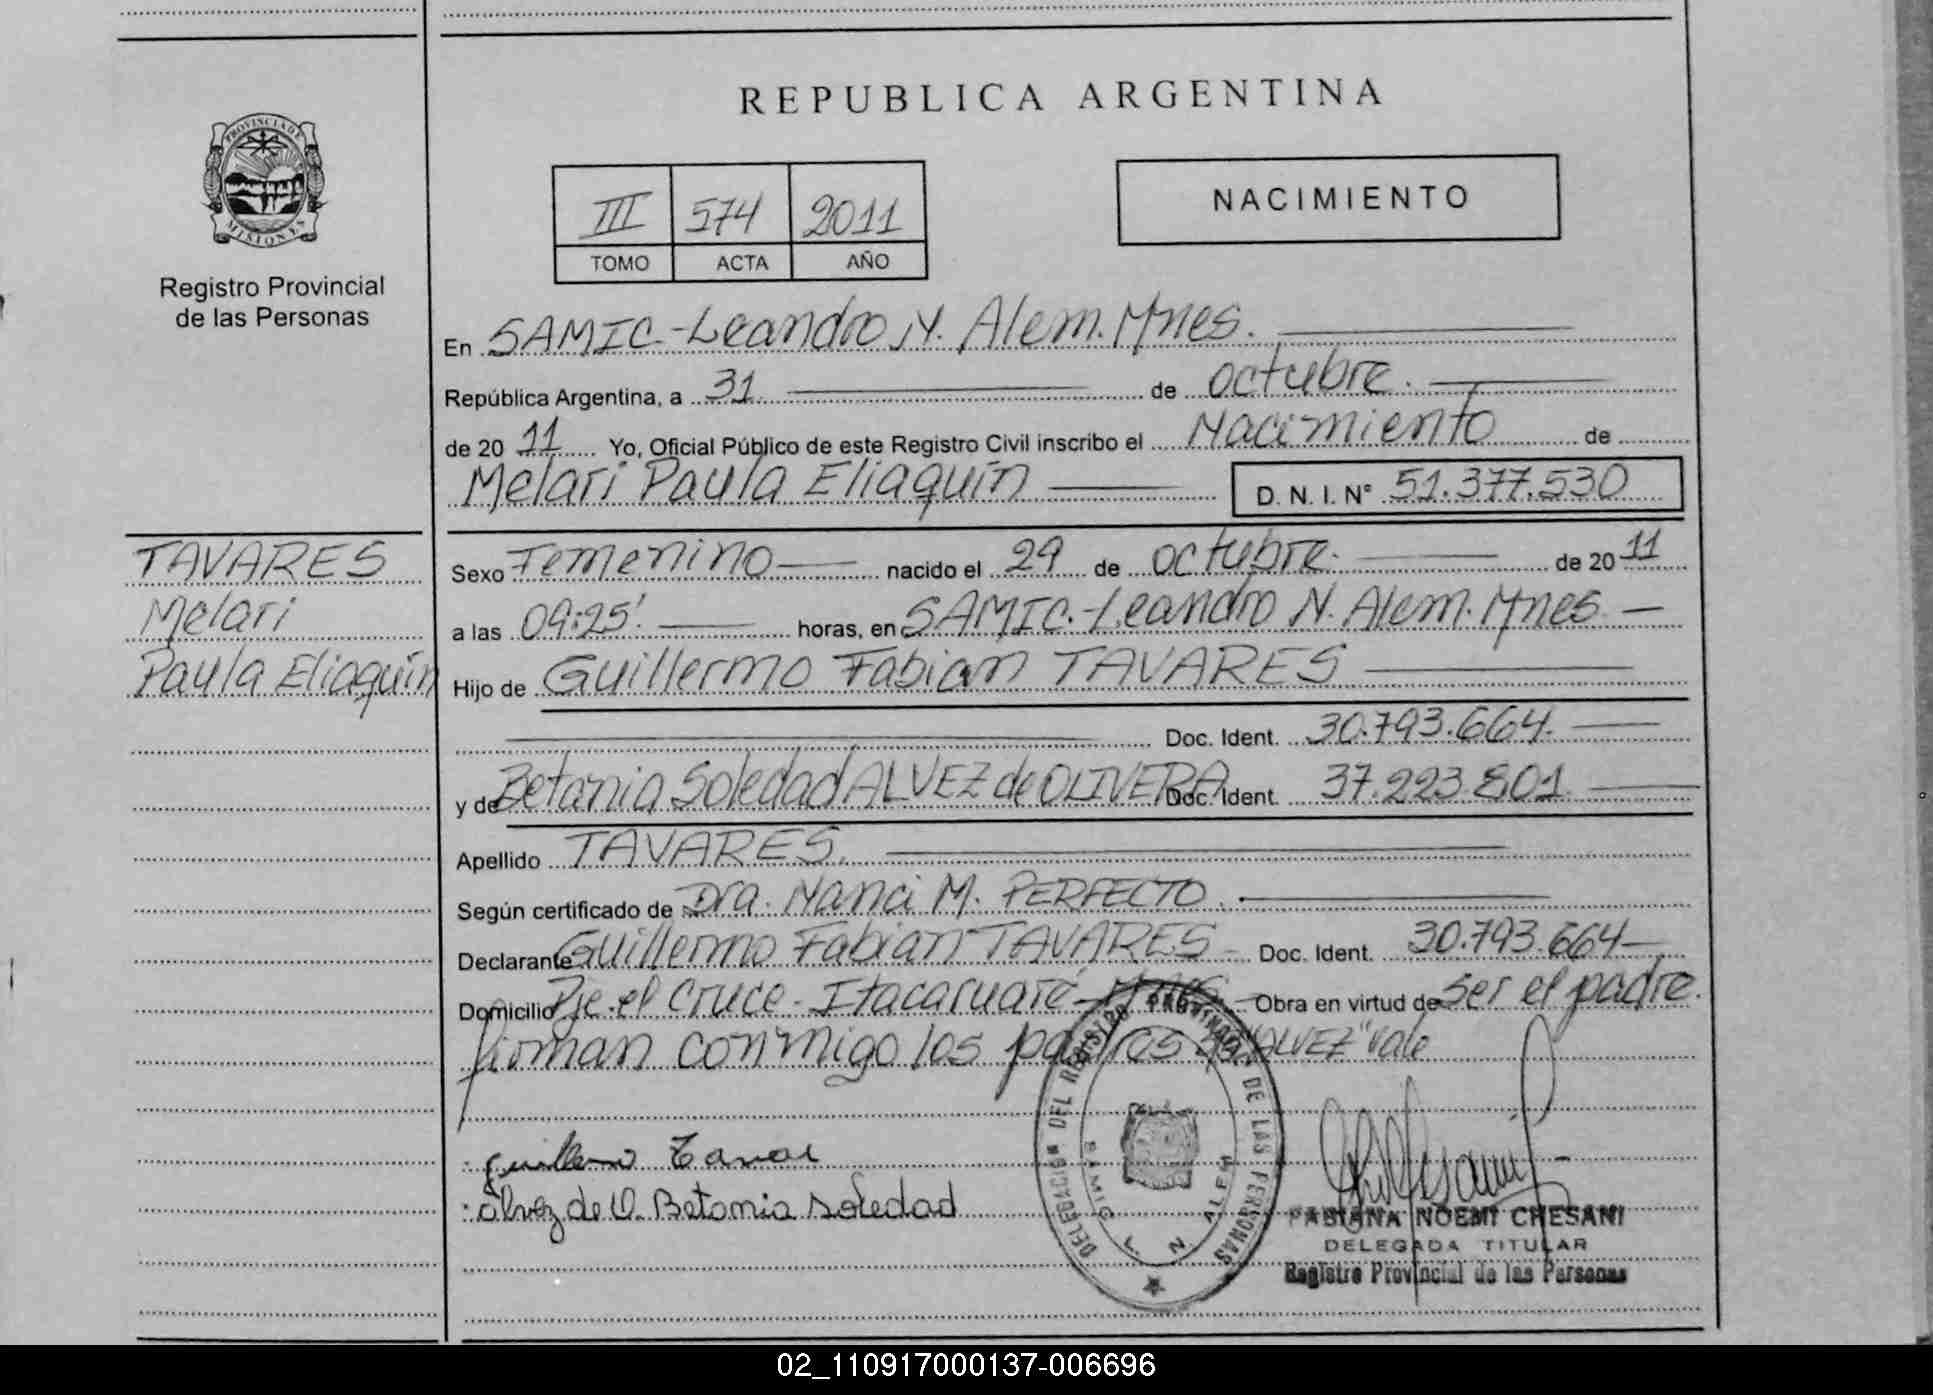 REPUBLICA ARGENTINA
PROVINCIA DE
MISIONES
Registro Provincial
de las Personas
III 574 2011
TOMO ACTA AÑO
NACIMIENTO
En SAMIC-Leandro N. Alem. Mnes.
República Argentina, a 31 de octubre.
de 2011 Yo, Oficial Público de este Registro Civil inscribo el Nacimiento de
Melari Paula Eliaquin D. N. I. Nº 51.377.530
TAVARES
Melari
Paula Eliaquin
Sexo Femenino nacido el 29 de octubre. de 2011
a las 09:25' horas, en SAMIC.-Leandro N. Alem. Mnes
Hijo de Guillermo Fabian TAVARES
Doc. Ident. 30.793.664.
y de Betania Soledad ALVEZ de OLIVERA Doc. Ident. 37.223.801
Apellido TAVARES.
Según certificado de Dra. Nanci M. PERFECTO.
Declarante Guillermo Fabian TAVARES Doc. Ident. 30.793.664
Domicilio Pje. el Cruce - Itacaruaré - Mnes Obra en virtud de ser el padre.
firman conmigo los padres ALVEZ" Vale
Alvez de O. Betania Soledad
DELEGACION DEL REGISTRO PROVINCIAL DE LAS PERSONAS
SAMIC L. N. ALEM
FABIANA NOEMI CHESANI
DELEGADA TITULAR
Registro Provincial de las Personas
02_110917000137-006696